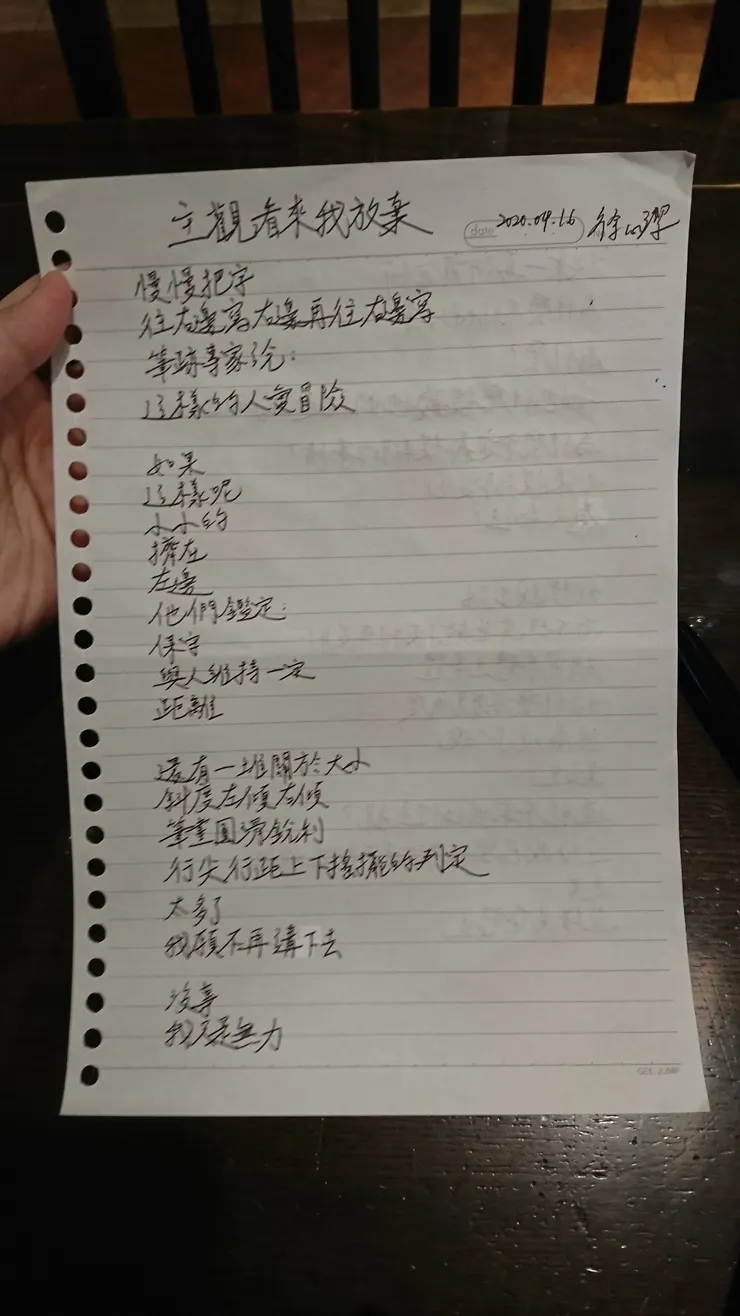 主觀看來我放棄
date 2020.04.16 徐
慢慢把字
往右邊寫右邊再往右邊寫
筆跡專家說：
這樣的人愛冒險
如果
這樣呢
小小的
擠在
左邊
他們鑑定：
保守
與人維持一定
距離
還有一堆關於大小
斜度左傾右傾
筆畫圓滑銳利
行尖行距上下搖擺的判定
太多了
我願不再講下去
沒事
我只是無力